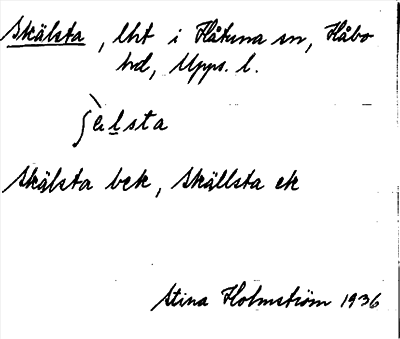 Skälsta, lht i Håtuna sn, Håbo
hd, Upps. l.
ʃèlsta
Skälsta bek, Skällsta ek
Stina Holmström 1936